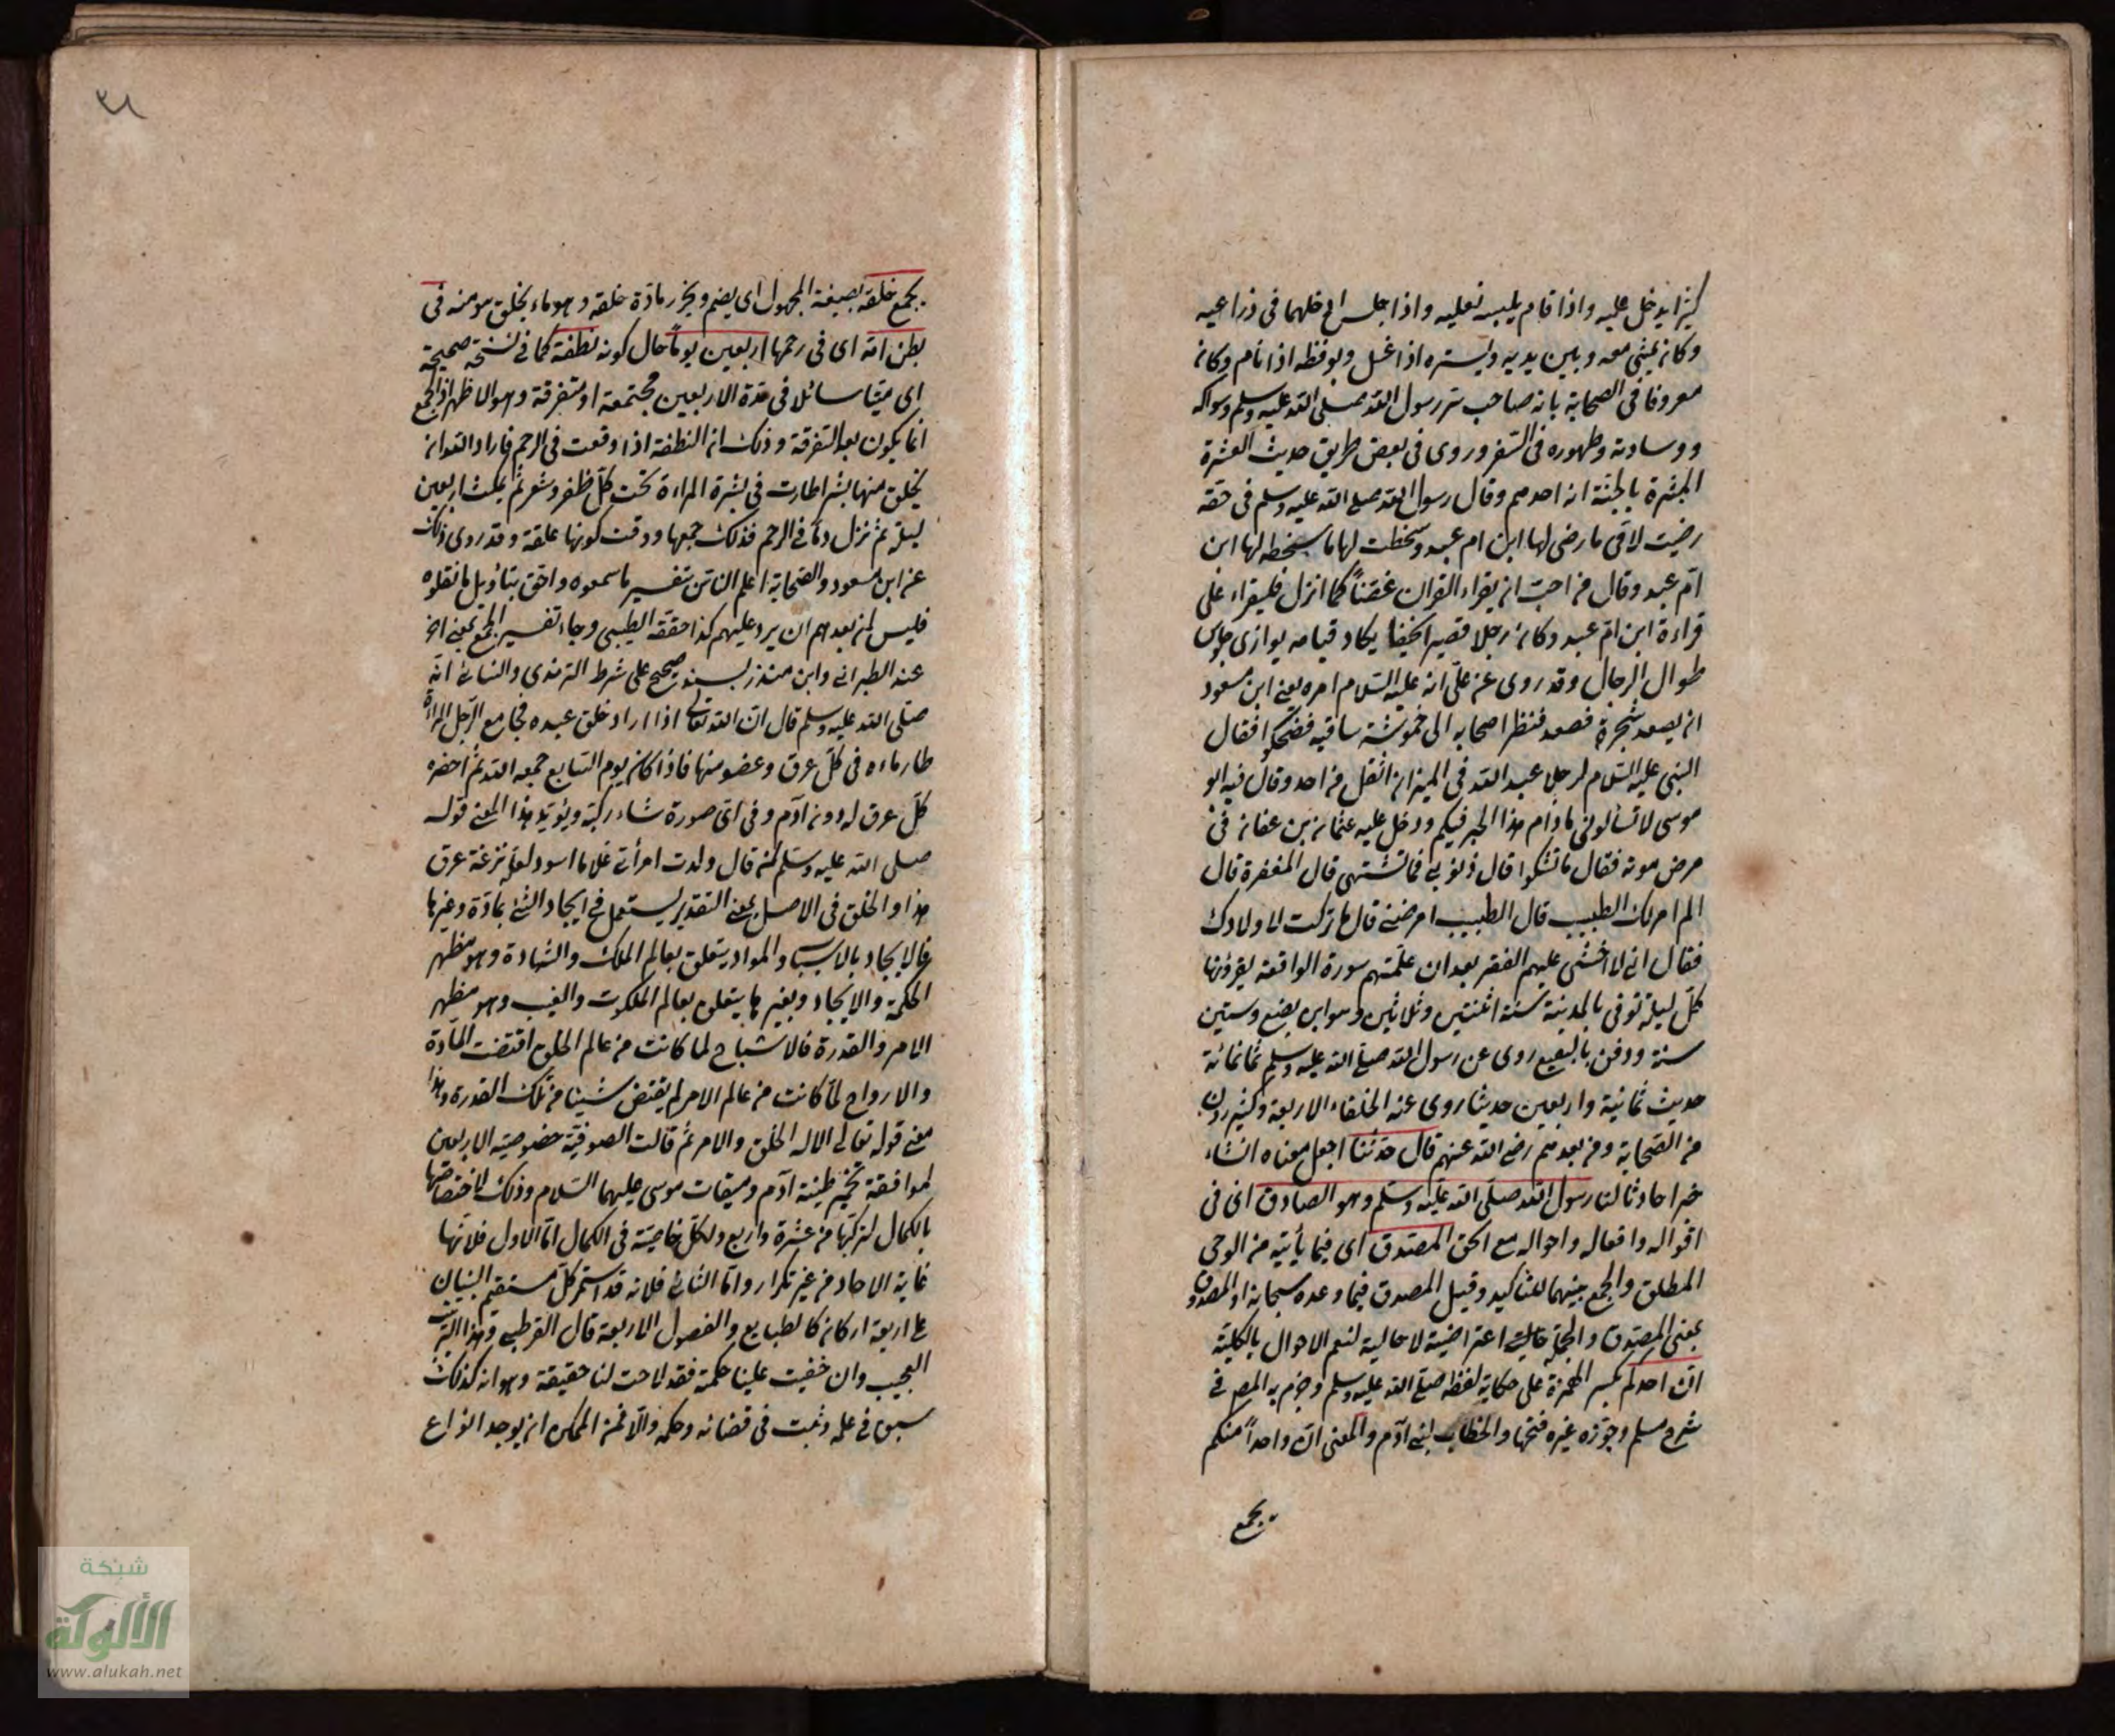 كثيرا يدخل عليه واذا قام يلبسه نعليه واذا جلس ادخلهما في ذراعيه
وكان يمشي معه وبين يديه ويستره اذا اغتسل ويوقظه اذا نام وكان
معروفا في الصحابة بانه صاحب سر رسول الله صلى الله عليه وسلم وسواكه
ووسادته وطهوره في السفر وروى في بعض طريق حديث العشرة
المبشرة بالجنة انه احدهم وقال رسول الله صلى الله عليه وسلم في حقه
رضيت لامتي ما رضي لها ابن ام عبد وسخطت لها ما سخطه لها ابن
ام عبد وقال من احب ان يقراء القران غضّاً كما انزل فليقراء على
قراءة ابن ام عبد وكان رجلا قصيرا نحيفا يكاد قيامه يوازى جلوس
طوال الرجال وقد روى عن علي انه عليه السلام امره يعني ابن مسعود
ان يصعد شجرة فصعد فنظر اصحابه الى خموشة ساقيه فضحكوا فقال
النبي عليه السلام لرجل عبد الله في الميزان اثقل من احد وقال فيه ابو
موسى لا تسألوني ما دام هذا الحبر فيكم ودخل عليه عثمان بن عفان في
مرض موته فقال ما تشكوا قال ذنوبي فما تشتهي قال المغفرة قال
الم امر لك الطبيب قال الطبيب امرضني قال ما تركت لاولادك
فقال اني لا اخشى عليهم الفقر بعد ان علمتهم سورة الواقعة يقرؤنها
كل ليلة توفى بالمدينة سنة اثنتين وثلاثين وهو ابن بضع وستين
سنة ودفن بالبقيع روى عن رسول الله صلى الله عليه وسلم ثمانمائة
حديث ثمانية واربعين حديثا روى عنه الخلفاء الاربعة وكثيرون
من الصحابة ومن بعدهم رضي الله عنهم قال حدثنا اجعل معناه انشاء
خبرا حادثا لنا رسول الله صلى الله عليه وسلم وهو الصادق اى في
اقواله وافعاله واحواله مع الحق المصدوق اى فيما يأتيه من الوحي
المطلق والجمع بينهما للتاكيد وقيل المصدوق فيما وعده سبحانه او المصدوق
بمعنى المصدق والجملة اعتراضية لا حالية لتعم الاحوال بالكلية
ان احدكم بكسر الهمزة على حكاية لفظه صلى الله عليه وسلم وجزم به المص في
شرح مسلم وجوزه غيره فتحها والخطاب لبني آدم والمعنى ان واحداً منكم
يجمع
يجمع خلقه بصيغة المجهول اى يضم ويحرز مادة خلقه وهو ماء يخلق هو منه في
بطن امه اى في رحمها اربعين يوماً حال كونه نطفة كما في نسخة صحيحة
اى منيّا سائلا في مدة الاربعين مجتمعة او متفرقة وهو الاظهر اذ الجمع
انما يكون بعد التفرقة وذلك ان النطفة اذا وقعت في الرحم فاراد الله ان
يخلق منها بشرا طارت في بشرة المراءة تحت كل ظفر وشعر ثم تمكث اربعين
ليلة ثم تنزل دما في الرحم فذلك جمعها ووقت كونها علقة وقد روى ذلك
عن ابن مسعود والصحابة اعلم الناس بتفسير ما سمعوه واحق بتأويل ما نقلوه
فليس لمن بعدهم ان يرد عليهم كذا حققه الطيبي وجاء تفسير الجمع بمعنى اخر
عند الطبراني وابن منذر بسند صحيح على شرط الترمذي والنسائى انه
صلى الله عليه وسلم قال ان الله تعالى اذا اراد خلق عبده فجامع الرجل المراءة
طار ماءه في كل عرق وعضو منها فاذا كان يوم السابع جمعه الله ثم احضره
كل عرق له دون آدم وفي اى صورة شاء ركبه ويؤيد هذا المعنى قوله
صلى الله عليه وسلم لمن قال ولدت امرأتي غلاما اسود لعله نزعة عرق
هذا والخلق في الاصل بمعنى التقدير يستعمل في ايجاد الشئ بمادة وغيرها
فالايجاد بالاسباب والمواد يتعلق بعالم الملك والشهادة وهو مظهر
الحكمة والايجاد وبغيرها يتعلق بعالم الملكوت والغيب وهو مظهر
الامر والقدرة فالاشباح لما كانت من عالم الخلق اقتضت المادة
والارواح لما كانت من عالم الامر لم يقتض شيئا من تلك القدرة وهذا
معنى قوله تعالى الا له الخلق والامر ثم قالت الصوفية خصوصية الاربعين
لموافقة تخمير طينة آدم وميقات موسى عليهما السلام وذلك لاختصاصها
بالكمال لتركبها من عشرة واربع ولكل خاصية في الكمال اما الاول فلانها
غاية الاحاد من غير تكرار واما الثاني فلانه قد استمر كل مستقيم البنيان
على اربعة اركان كالطبايع والفصول الاربعة قال القرطبي وهذا الترتيب
العجيب وان خفيت علينا حكمة فقد لاحت لنا حقيقة وهو انه كذلك
سبق في علمه وثبت في قضائه وحكمه والا فمن الممكن ان يوجد انواع
شبكة
الألوكة
www.alukah.net